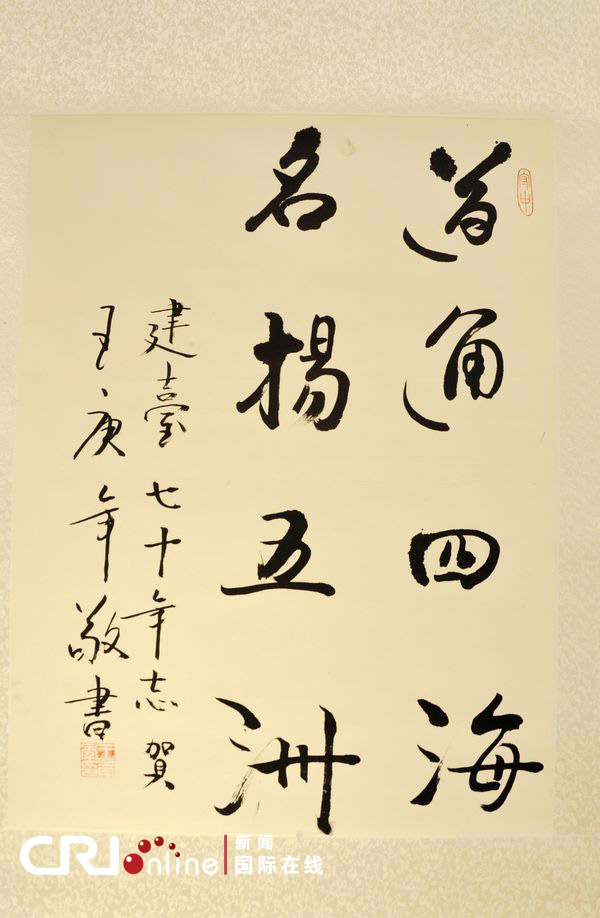 道通四海
名揚五洲
建臺七十年志賀
王庚年敬書
CRI online
新闻
国际在线